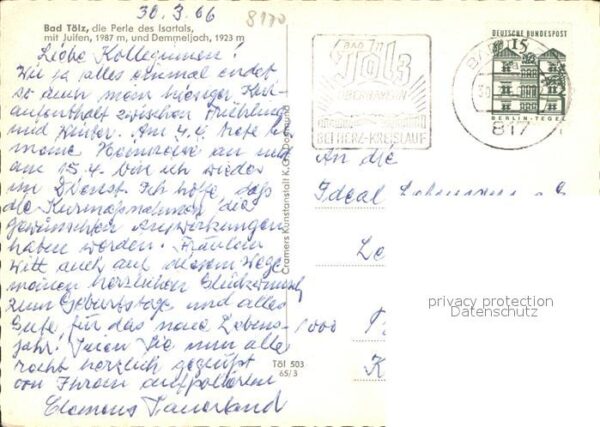 30.3.66
8170
Bad Tölz, die Perle des Isartals,
mit Juifen, 1987 m, und Demmeljoch, 1923 m
Liebe Kolleginnen!
Wie ja alles einmal endet
so auch mein hiesiger Kur-
aufenthalt zwischen Frühling
und Winter. Am 4.4. trete ich
meine Heimreise an und
am 15.4. bin ich wieder
im Dienst. Ich hoffe, daß
die Kurmaßnahmen die
gewünschten Auswirkungen
haben werden. Fräulein
Witt auch auf diesem Wege
meinen herzlichen Glückwunsch
zum Geburtstage und alles
Gute für das neue Lebens-
jahr! Seien Sie nun alle
recht herzlich gegrüßt
von Ihrem aufpolierten
Clemens Sauerland
Cramers Kunstanstalt K.G., Dortmund
Töl 503
65/3
BAD
Tölz
OBERBAYERN
BEI HERZ-KREISLAUF
BAD
30
817
15
DEUTSCHE BUNDESPOST
BERLIN-TEGEL
An die
Ideal
1000
K
privacy protection
Datenschutz